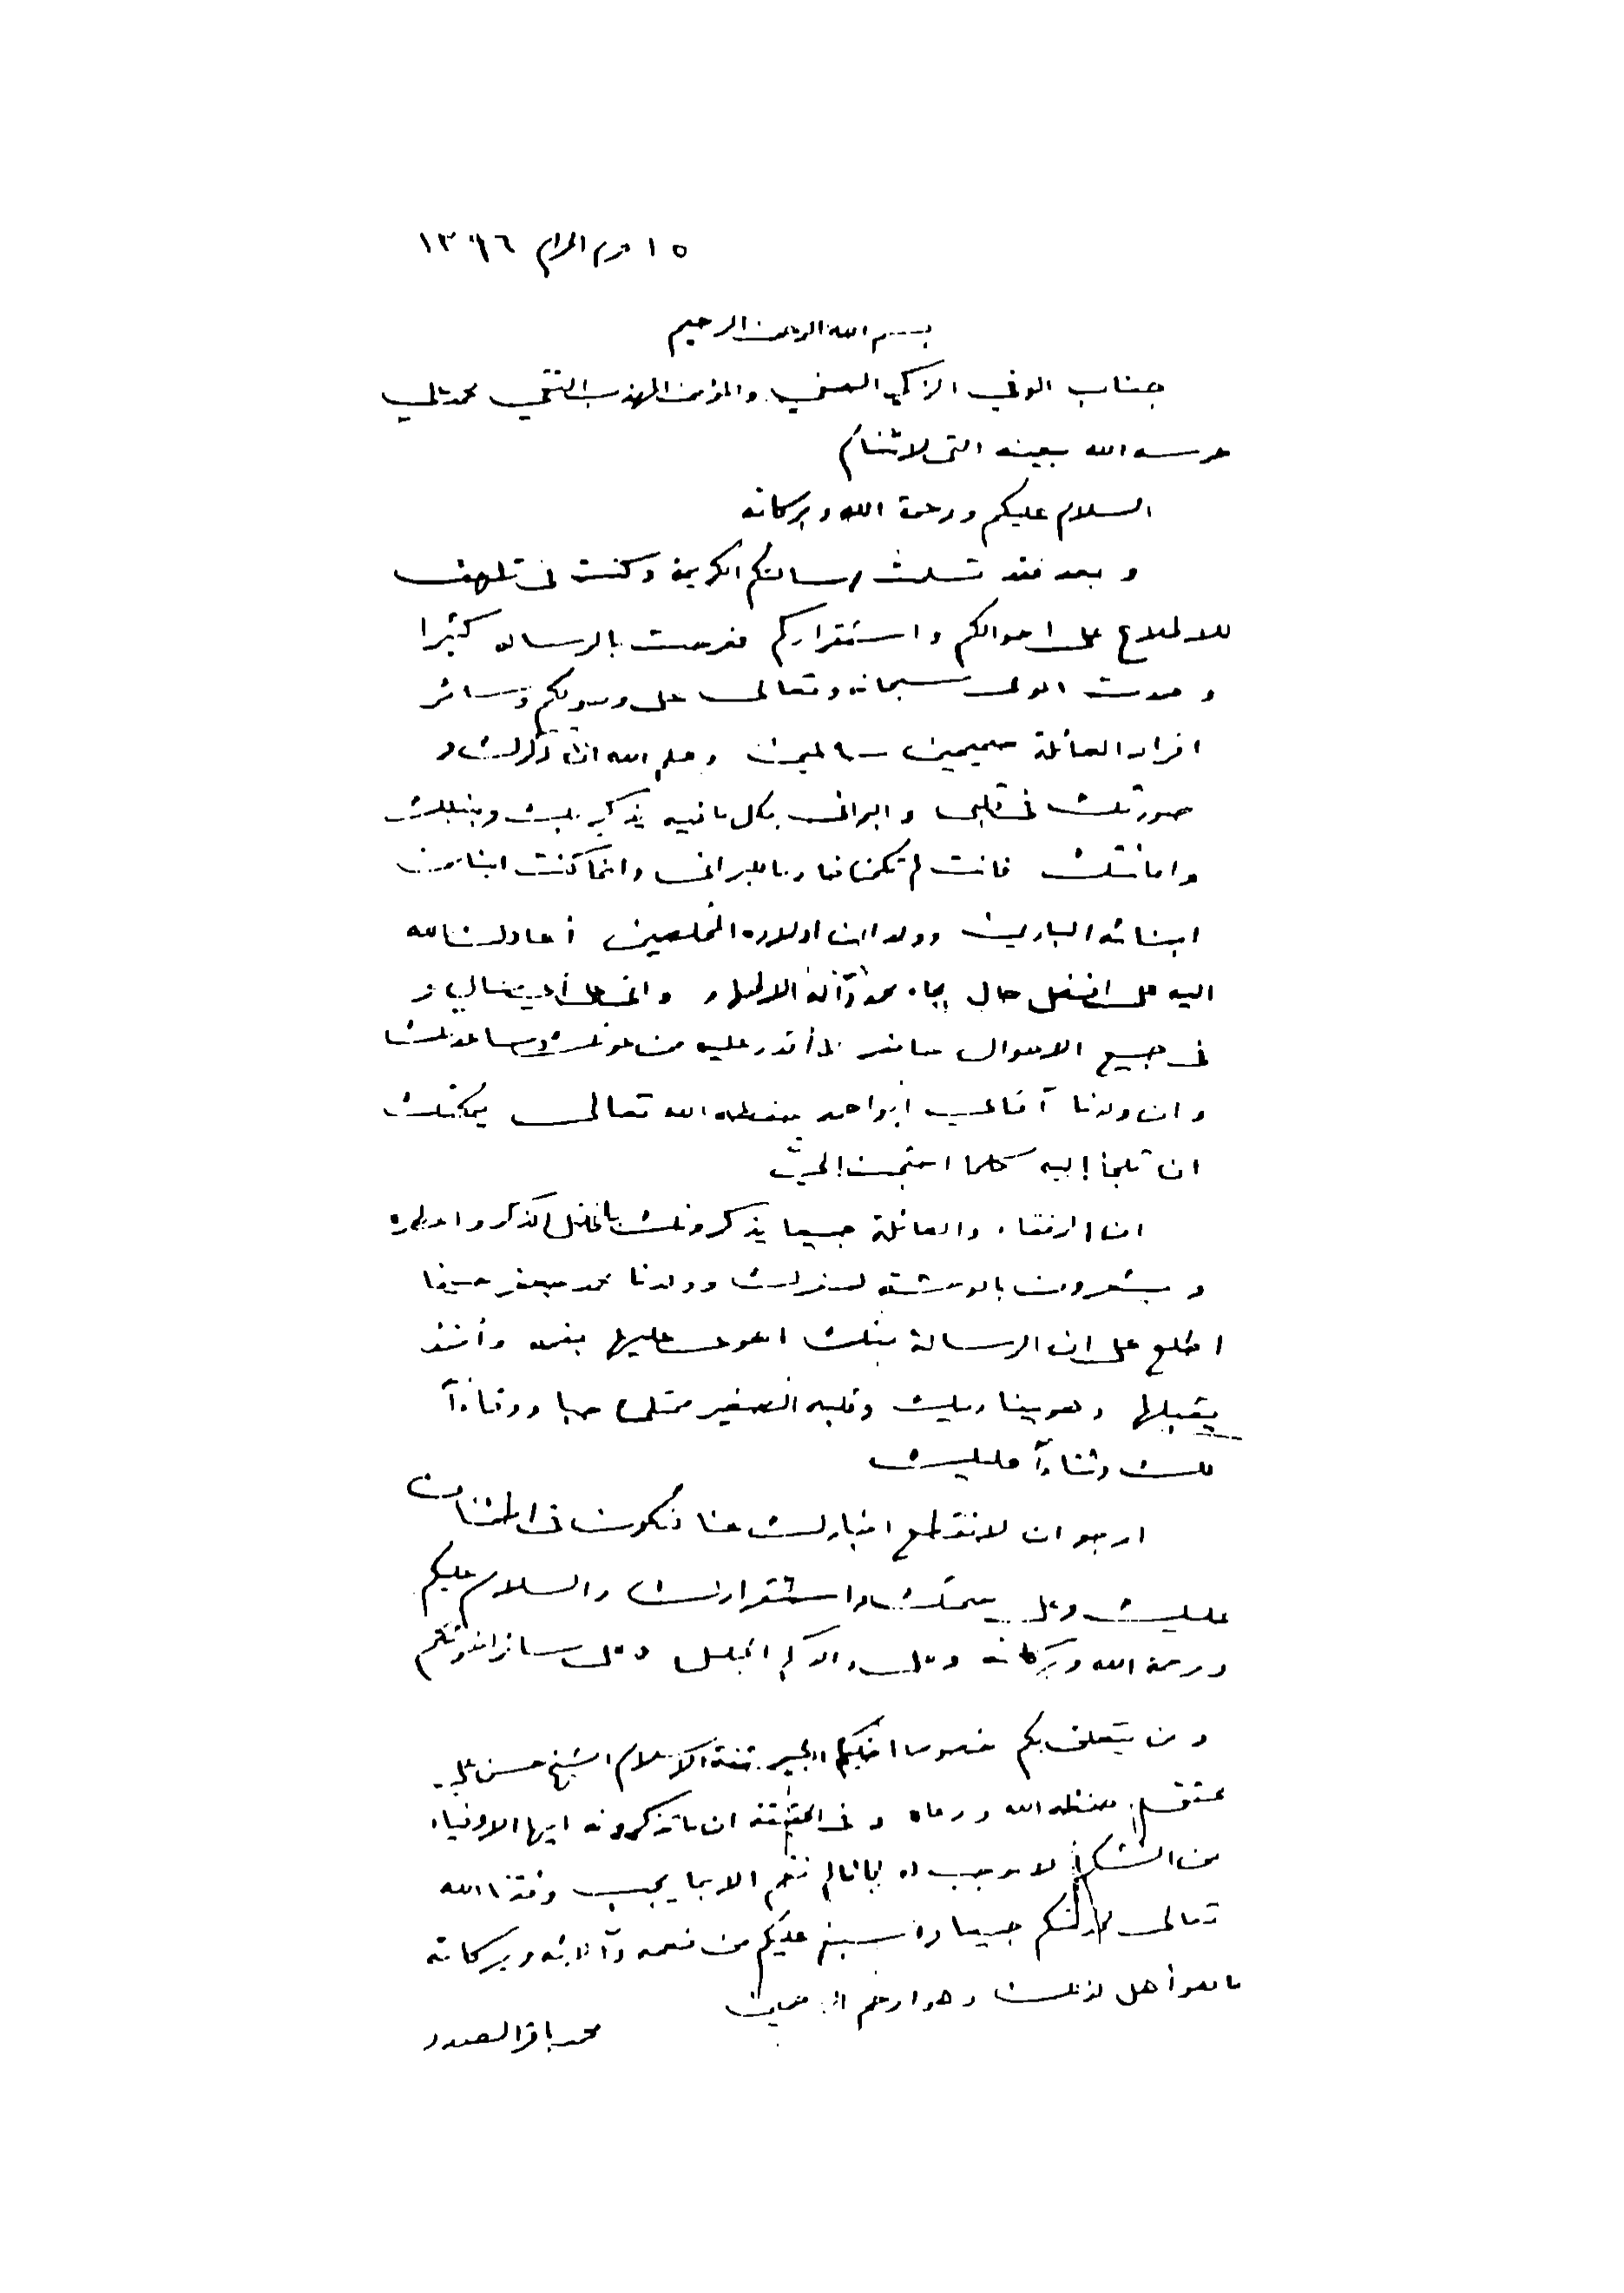 ١٥ محرم الحرام ١٣٩٦
بسم الله الرحمن الرحيم
جناب الوفي الزكي الصفي والمؤمن المهذب التقي محمد علي
حرسه الله بعينه التي لا تنام
السلام عليكم ورحمة الله وبركاته
وبعد فقد تسلمت رسالتكم الكريمة وكنت في تلهف
للاطلاع على احوالكم واستقراركم ففرحت بالرسالة كثيرا
وحمدت المولى سبحانه وتعالى على وصولكم وسائر
افراد العائلة صحيحين سالمين وعلم الله ان ذكراك و
صورتك في قلبي والبراني بكل ما فيه يذكر بك وبنبلك
وامانتك فانت لم تكن خادما للبراني وانما كنت ابنا من
ابنائه البارين وولدا من اولاده المخلصين أعادك الله
اليه على افضل حال بجاه محمد وآله الاطهار واني على أي حال و
في جميع الاحوال حاضر لما أقدر عليه من عونك ومساعدتك
وان ولدنا آقاي أبو احمد حفظه الله تعالى يمكنك
ان تلجأ إليه كلما احتجت إلى
ان الرفقاء والعائلة جميعا يذكرونك بافضل الذكر واعطره
ويشعرون بالوحشة لسفرك وولدنا محمد جعفر حينما
اطلع على ان الرسالة منك اهوى عليها بفمه وأخذ
يقبلها وهو يناديك وقلبه الصغير ممتلئ حبا ووفاءآ
لك وثناءآ عليك
ارجو ان لا تقطع اخبارك عنا لنكون في اطمئنان
عليك وعلى صحتك واستقرارك والسلام عليكم
ورحمة الله وبركاته وعلى والدكم الجليل وعلى سائر اخوتكم
ومن يتعلق بكم خصوصا اخيكم الكبير ثقة الاسلام الشيخ حسن علي
محقق حفظه الله ورعاه وفي الحقيقة ان ما تذكرونه ايها الاوفياء
من الشكر لا موجب له فإننا لم نقم الا بما يجب وفقنا الله
تعالى جميعا واسبغ عليكم من نعمه وآلائه وبركاته
ما هو أهل لذلك وهو ارحم الراحمين
محمد باقر الصدر